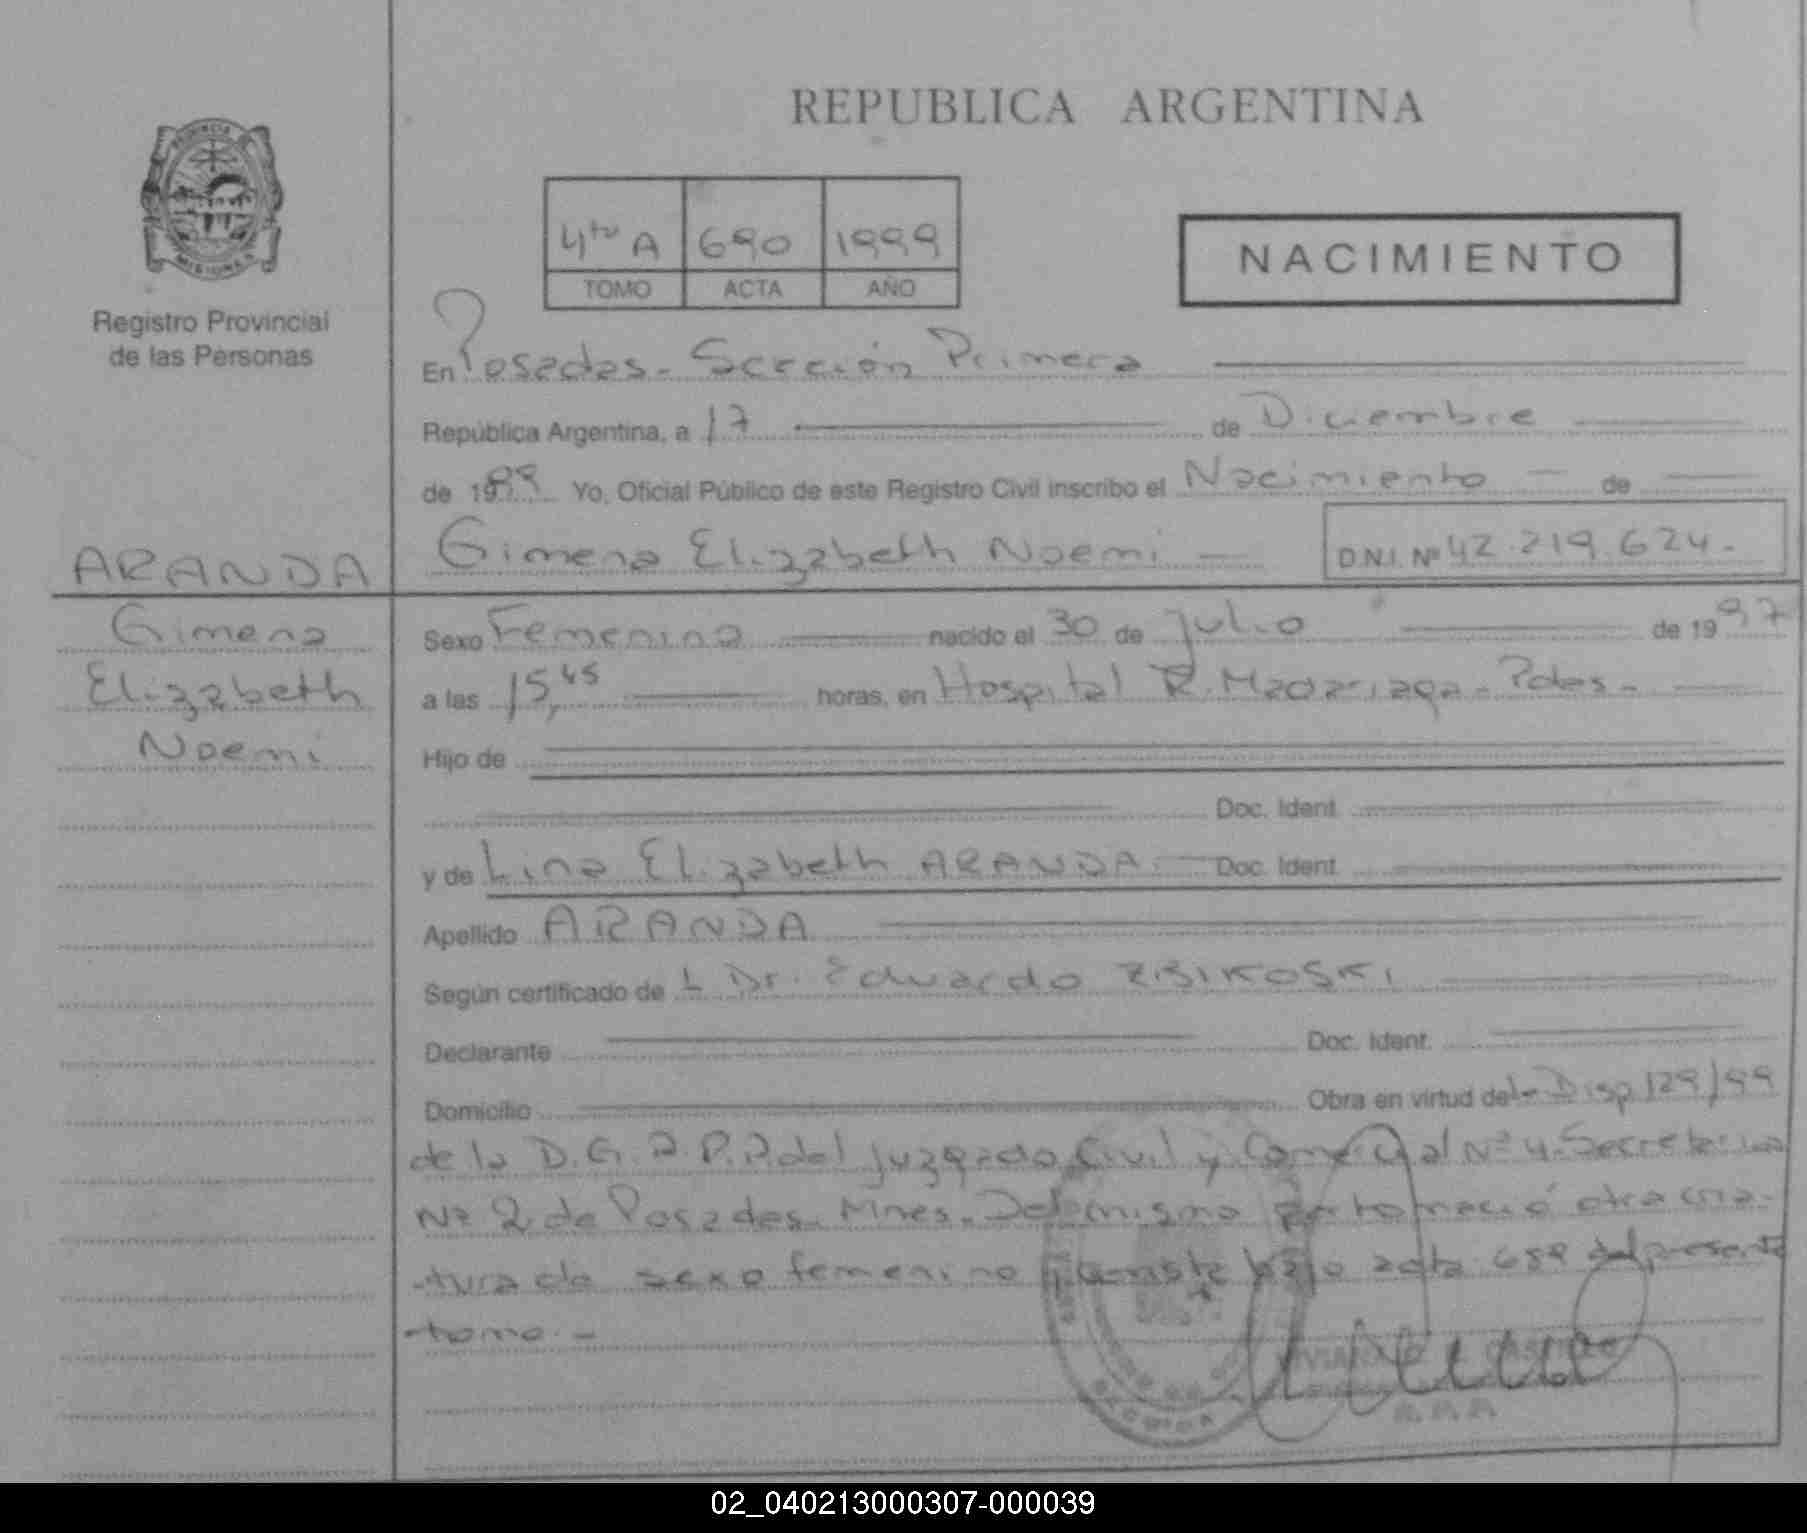 REPUBLICA ARGENTINA
PROVINCIA
MISIONES
Registro Provincial
de las Personas
4to A 690 1999
TOMO ACTA AÑO
NACIMIENTO
En Posadas - Sección Primera
República Argentina, a 17 de Diciembre
de 1999 Yo, Oficial Público de este Registro Civil inscribo el Nacimiento de
Gimena Elizabeth Noemi D.N.I. Nº 42.219.624.-
ARANDA
Gimena
Elizabeth
Noemi
Sexo Femenino nacido el 30 de Julio de 1997
a las 15,45 horas, en Hospital R. Madariaga - Pdas -
Hijo de
Doc. Ident.
y de Lina Elizabeth ARANDA.- Doc. Ident.
Apellido ARANDA
Según certificado de L Dr. Eduardo ZBIKOSKI
Declarante Doc. Ident.
Domicilio Obra en virtud de la Disp 129/99
de la D.G.R.P. del Juzgado Civil y Comercial Nº 4 - Secretaria
Nº 2 de Posadas - Mnes. - Del mismo parto nació otra cria-
-tura de sexo femenino consta bajo acta 689 del presente
-tomo.-
02_040213000307-000039